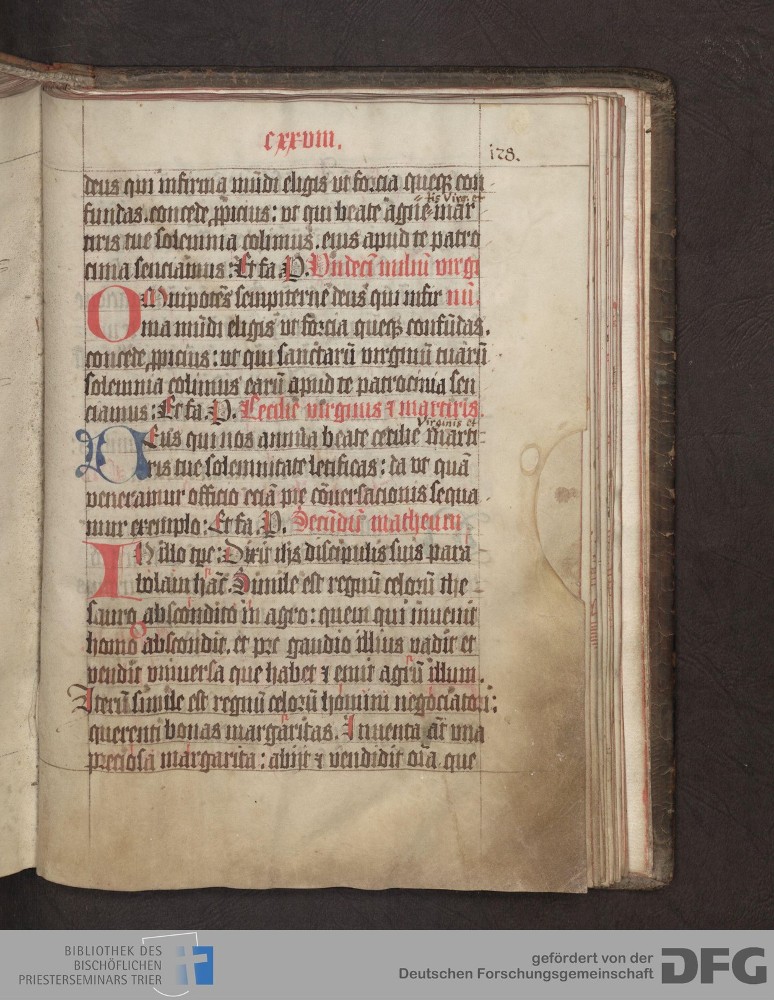 cxxviii.
128.
deus qui infirma mūdi eligis ut forcia queqȝ con
fundas. concede ꝓpicius: ut qui beate agñe mar
tis Virg. et
tiris tue solemnia colimus. eius apud te patro
cinia senciamus: Et fa. P. Undecī miliū virgi
OMnipotēs sempiterne deus qui infir nū.
ma mūdi eligis ut forcia queqȝ confūdas.
concede ꝓpicius: ut qui sanctarū virginū tuarū
solemnia colimus earū apud te patrocinia sen
ciamus: Et fa. P. Cecilie virginis ⁊ martiris.
Virginis et
DEus qui nos annua beate cecilie marti
ris tue solemnitate letificas: da ut quā
veneramur officio eciā pie cōuersacionis sequa
mur exemplo: Et fa. P. Secūdū matheum
IN illo tpe: Dixit ihs discipulis suis para
bolam hāc. Simile est regnū celorū the
sauro abscondito in agro: quem qui inuenit
homo abscondit. et pre gaudio illius vadit et
vendit vniuersa que habet ⁊ emit agrū illum.
Iterū simile est regnū celorū homini negociatori:
querenti bonas margaritas. Inuenta āt una
preciosa margarita: abijt ⁊ vendidit oīa que
BIBLIOTHEK DES
BISCHÖFLICHEN
PRIESTERSEMINARS TRIER
gefördert von der
Deutschen Forschungsgemeinschaft DFG